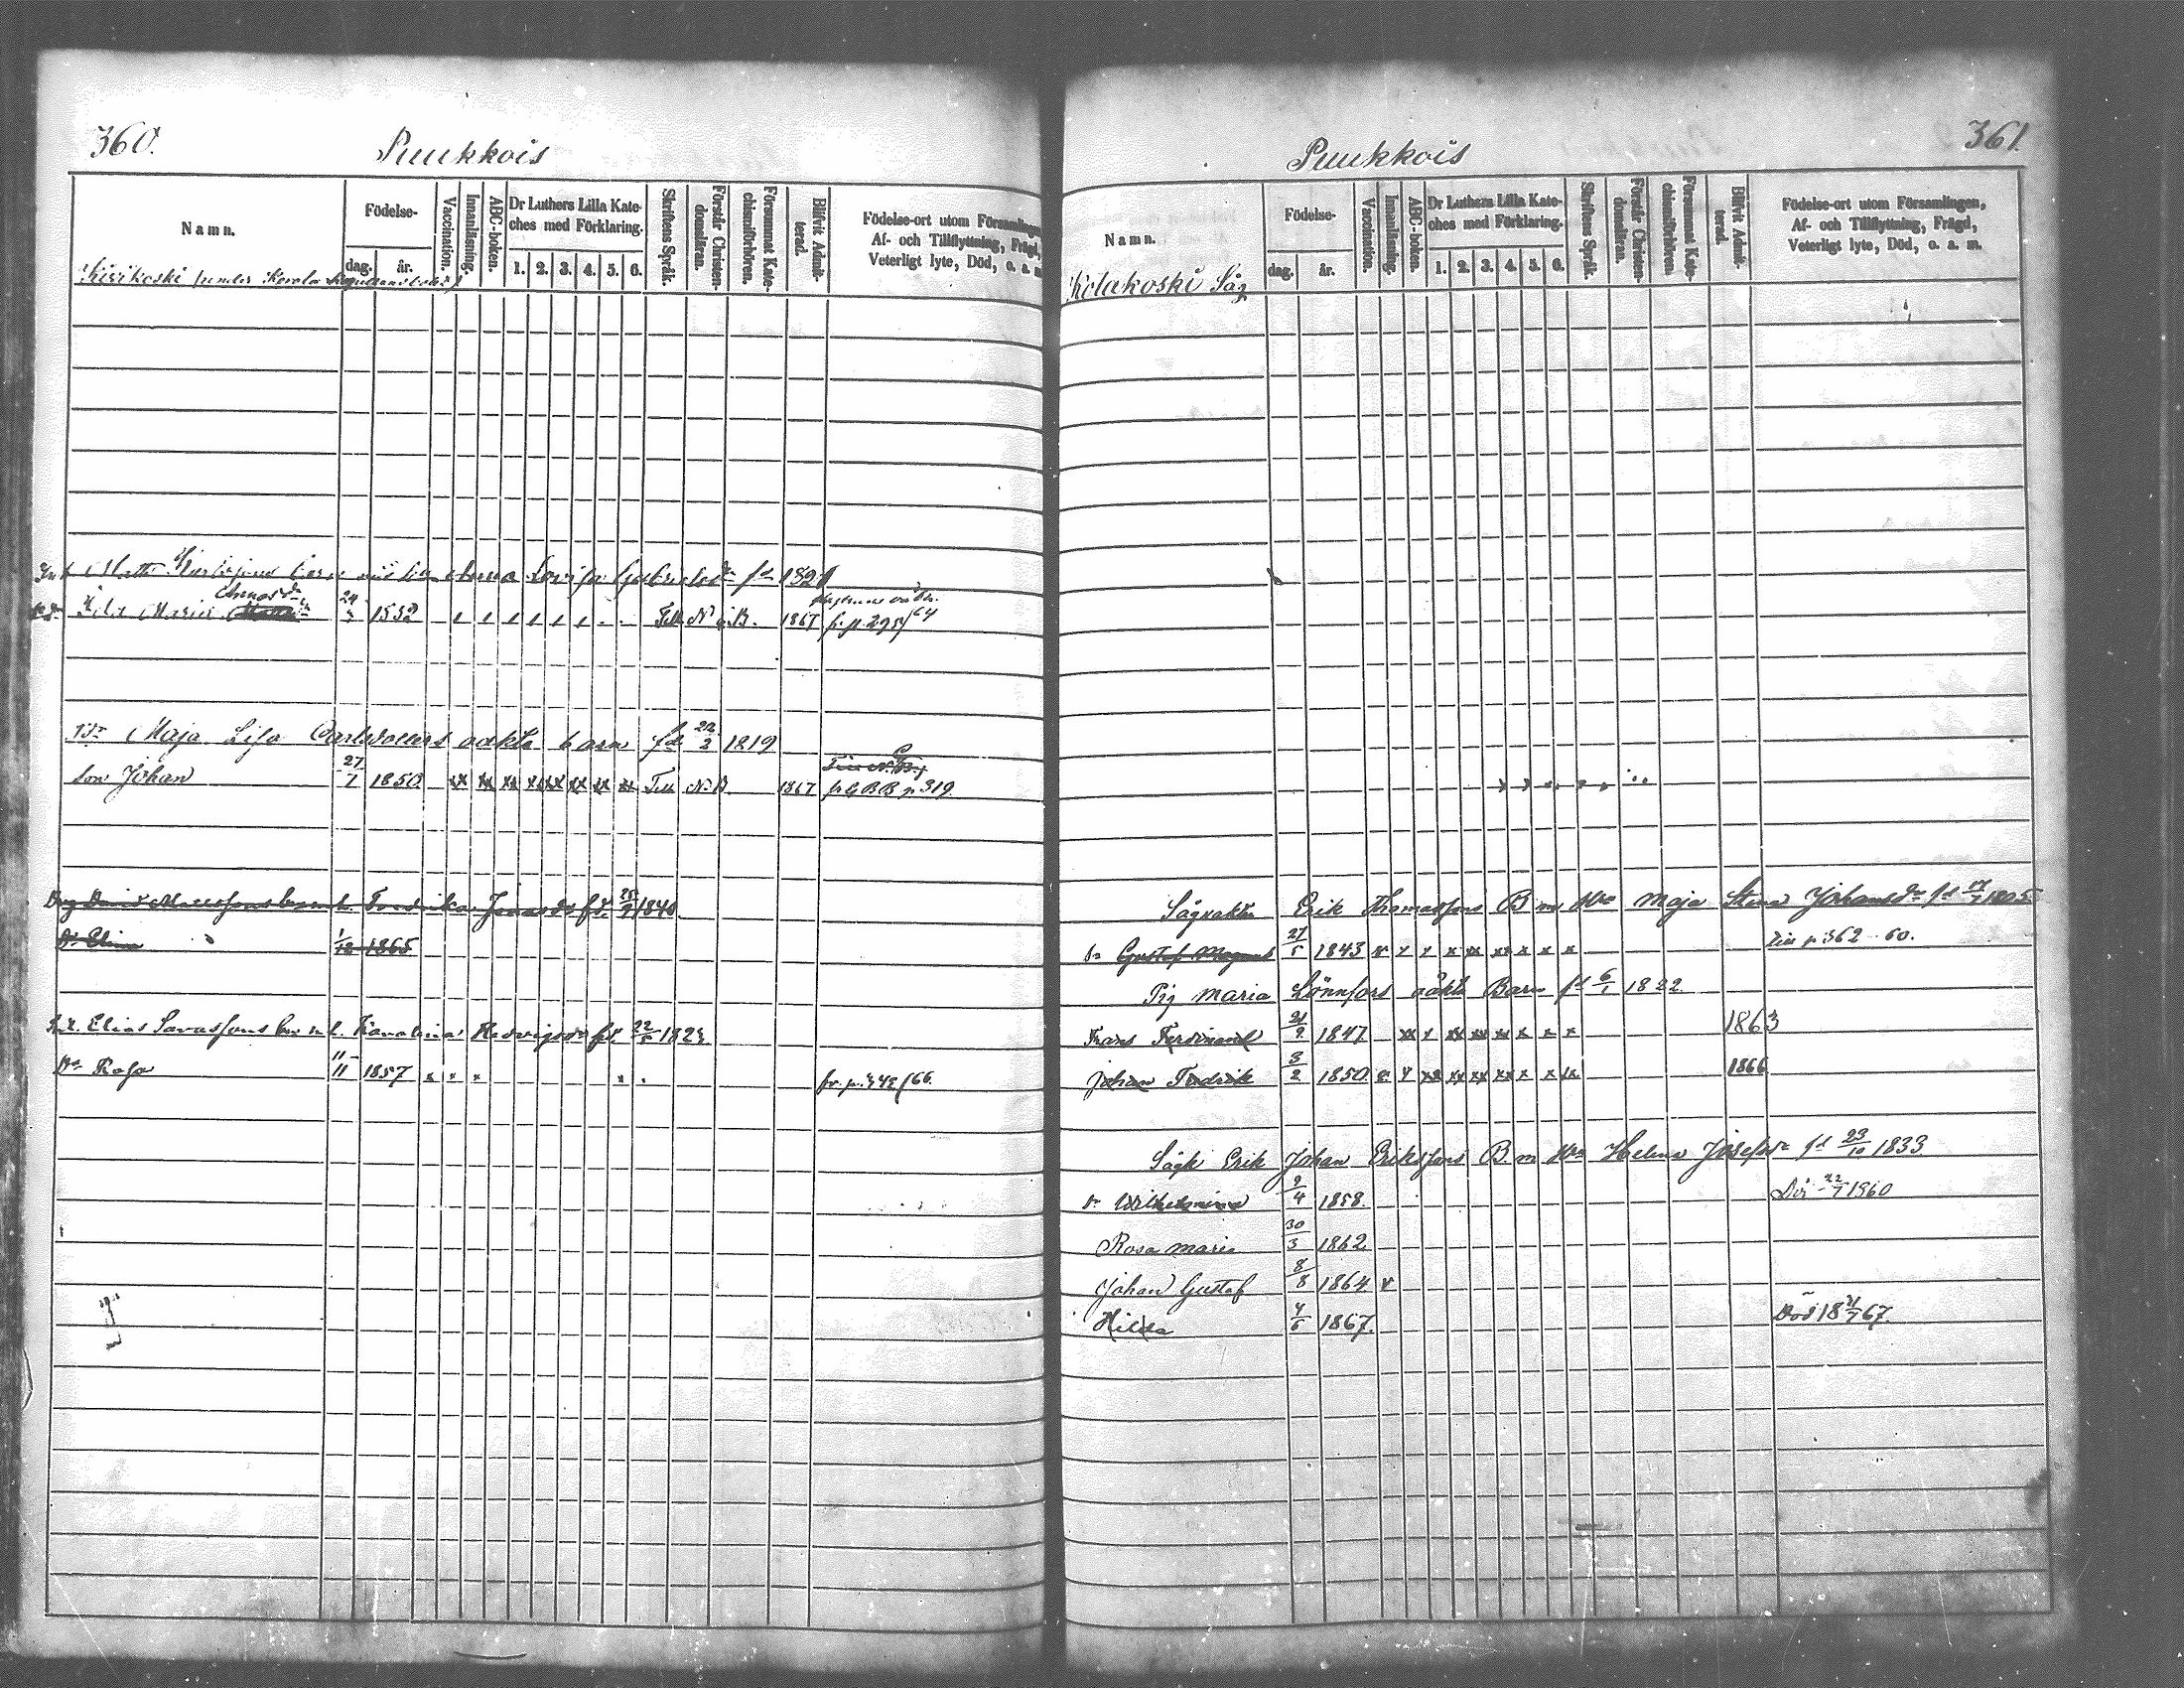 360.
Puukkois
Namn.
Födelse-
dag.
år.
Vaccination.
Innanläsning.
ABC-boken.
Dr Luthers Lilla Kate-
ches med Förklaring.
1. 2. 3. 4. 5. 6.
Skriftens Språk.
Förstår Christen-
domsläran.
Försummat Kate-
chismiförhören.
Blifvit Admit-
terad.
Födelse-ort utom Församlingen,
Af- och Tillflyttning, Frägd,
Veterligt lyte, Död, o. a. m.
Kivikoski (under Kerola
Anna Lovisa Gabrielsdr fd 1821
Maria 24/3 1852 Till N B. 1867 fr. p 295/64
Maja Lisa Carlsdotters oäkta barn fd 22/2 1819
Son Johan 27/1 1850 xx xx xx xx xx xx xx xx Till N. B. 1867 fr G BB p 319
Drg David barn m. Fredrika fd 25/9 1840
Dr Elina 1/12 1865
Elias barn m. h. Karolina Hedvigsdr fd 22/5
Dr Rosa 11/11 1857 x x x x fr. p. 342/66.
361.
Puukkois
Namn.
Födelse-
dag.
år.
Vaccination.
Innanläsning.
ABC-boken.
Dr Luthers Lilla Kate-
ches med Förklaring.
1. 2. 3. 4. 5. 6.
Skriftens Språk.
Förstår Christen-
domsläran.
Försummat Kate-
chismiförhören.
Blifvit Admit-
terad.
Födelse-ort utom Församlingen,
Af- och Tillflyttning, Frägd,
Veterligt lyte, Död, o. a. m.
Kolakoski Såg
Erik Thomassons B m Hu Maja Stina Johansdr fd 1805
Sn Gustaf Magnus 27/5 1843 v x x x xx xx x x x Till p 362 - 60.
Pig Maria Lönnfors oäkta Barn fd 6/1 1822
Frans Ferdinand 21/9 1847 xx x xx xx xx x x x 1863
Johan Fredrik 8/2 1850 v x xx xx xx xx x x xx 1866
Sågk Erik Johan Erikssons B. m Hu Helena Josefsdr fd 23/10 1833
Dr Wilhelmina 9/4 1858. Död 22/7 1860
Rosa Maria 30/3 1862
Johan Gustaf 8/8 1864 v
Hilda 4/6 1867. Död 18 21/7 67.